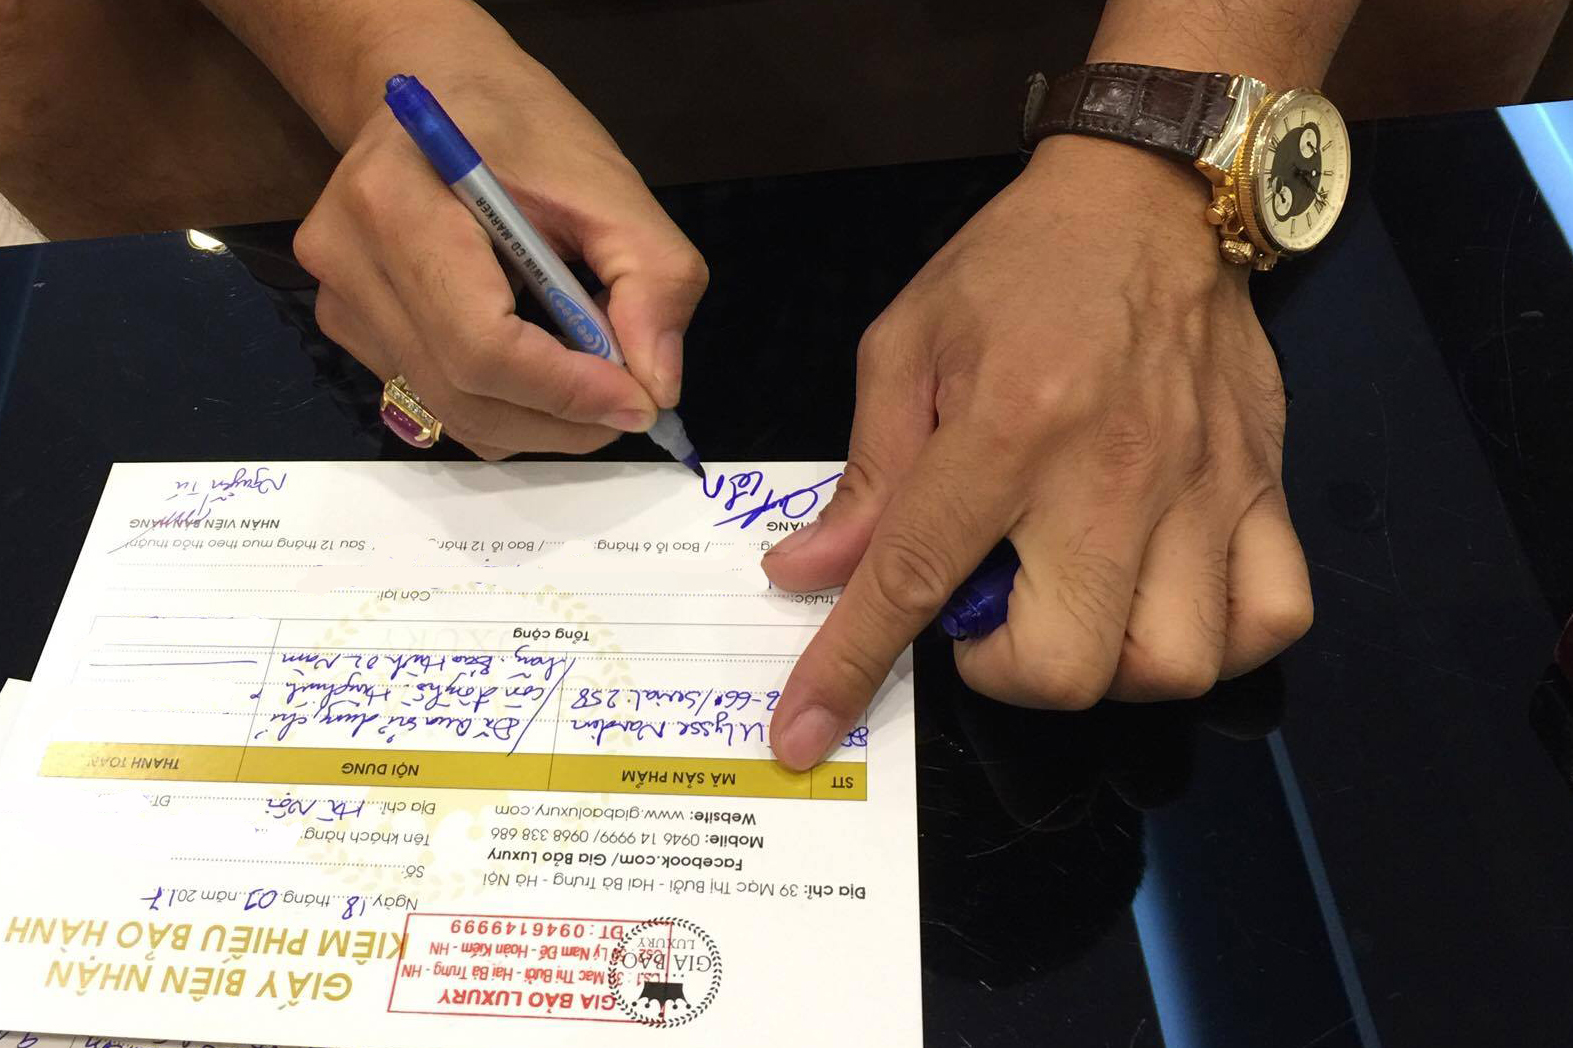 GIA BẢO
LUXURY
GIA BẢO LUXURY
CS1: 39 Mạc Thị Bưởi - Hai Bà Trưng - HN
Lý Nam Đế - Hoàn Kiếm - HN
ĐT: 0946149999
GIẤY BIÊN NHẬN
KIÊM PHIẾU BẢO HÀNH
Ngày 18 tháng 07 năm 2017
Địa chỉ: 39 Mạc Thị Bưởi - Hai Bà Trưng - Hà Nội
Facebook.com/ Gia Bảo Luxury
Mobile: 0946 14 9999/ 0968 338 686
Website: www.giabaoluxury.com
Số:
Tên khách hàng:
Địa chỉ: Hà Nội ĐT:
STT MÃ SẢN PHẨM NỘI DUNG THANH TOÁN
Ulysse Nardin Đã qua sử dụng, chỉ
/Serial: 258 còn đồng hồ.
Bảo Hành 02 Năm
Tổng cộng
trước: Còn lại:
/ Bao lỗ 6 tháng: / Bao lỗ 12 tháng Sau 12 tháng mua theo thỏa thuận
HÀNG NHÂN VIÊN BÁN HÀNG
Nguyễn Tú
TWIN CD MARKER